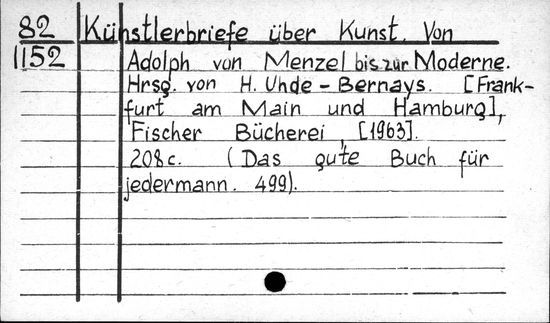 82 Künstlerbriefe über Kunst. Von
1152 Adolph von Menzel bis zur Moderne.
Hrsg. von H. Uhde-Bernays. [Frank-
furt am Main und Hamburg],
Fischer Bücherei, [1963].
208c. (Das gute Buch für
jedermann. 499).